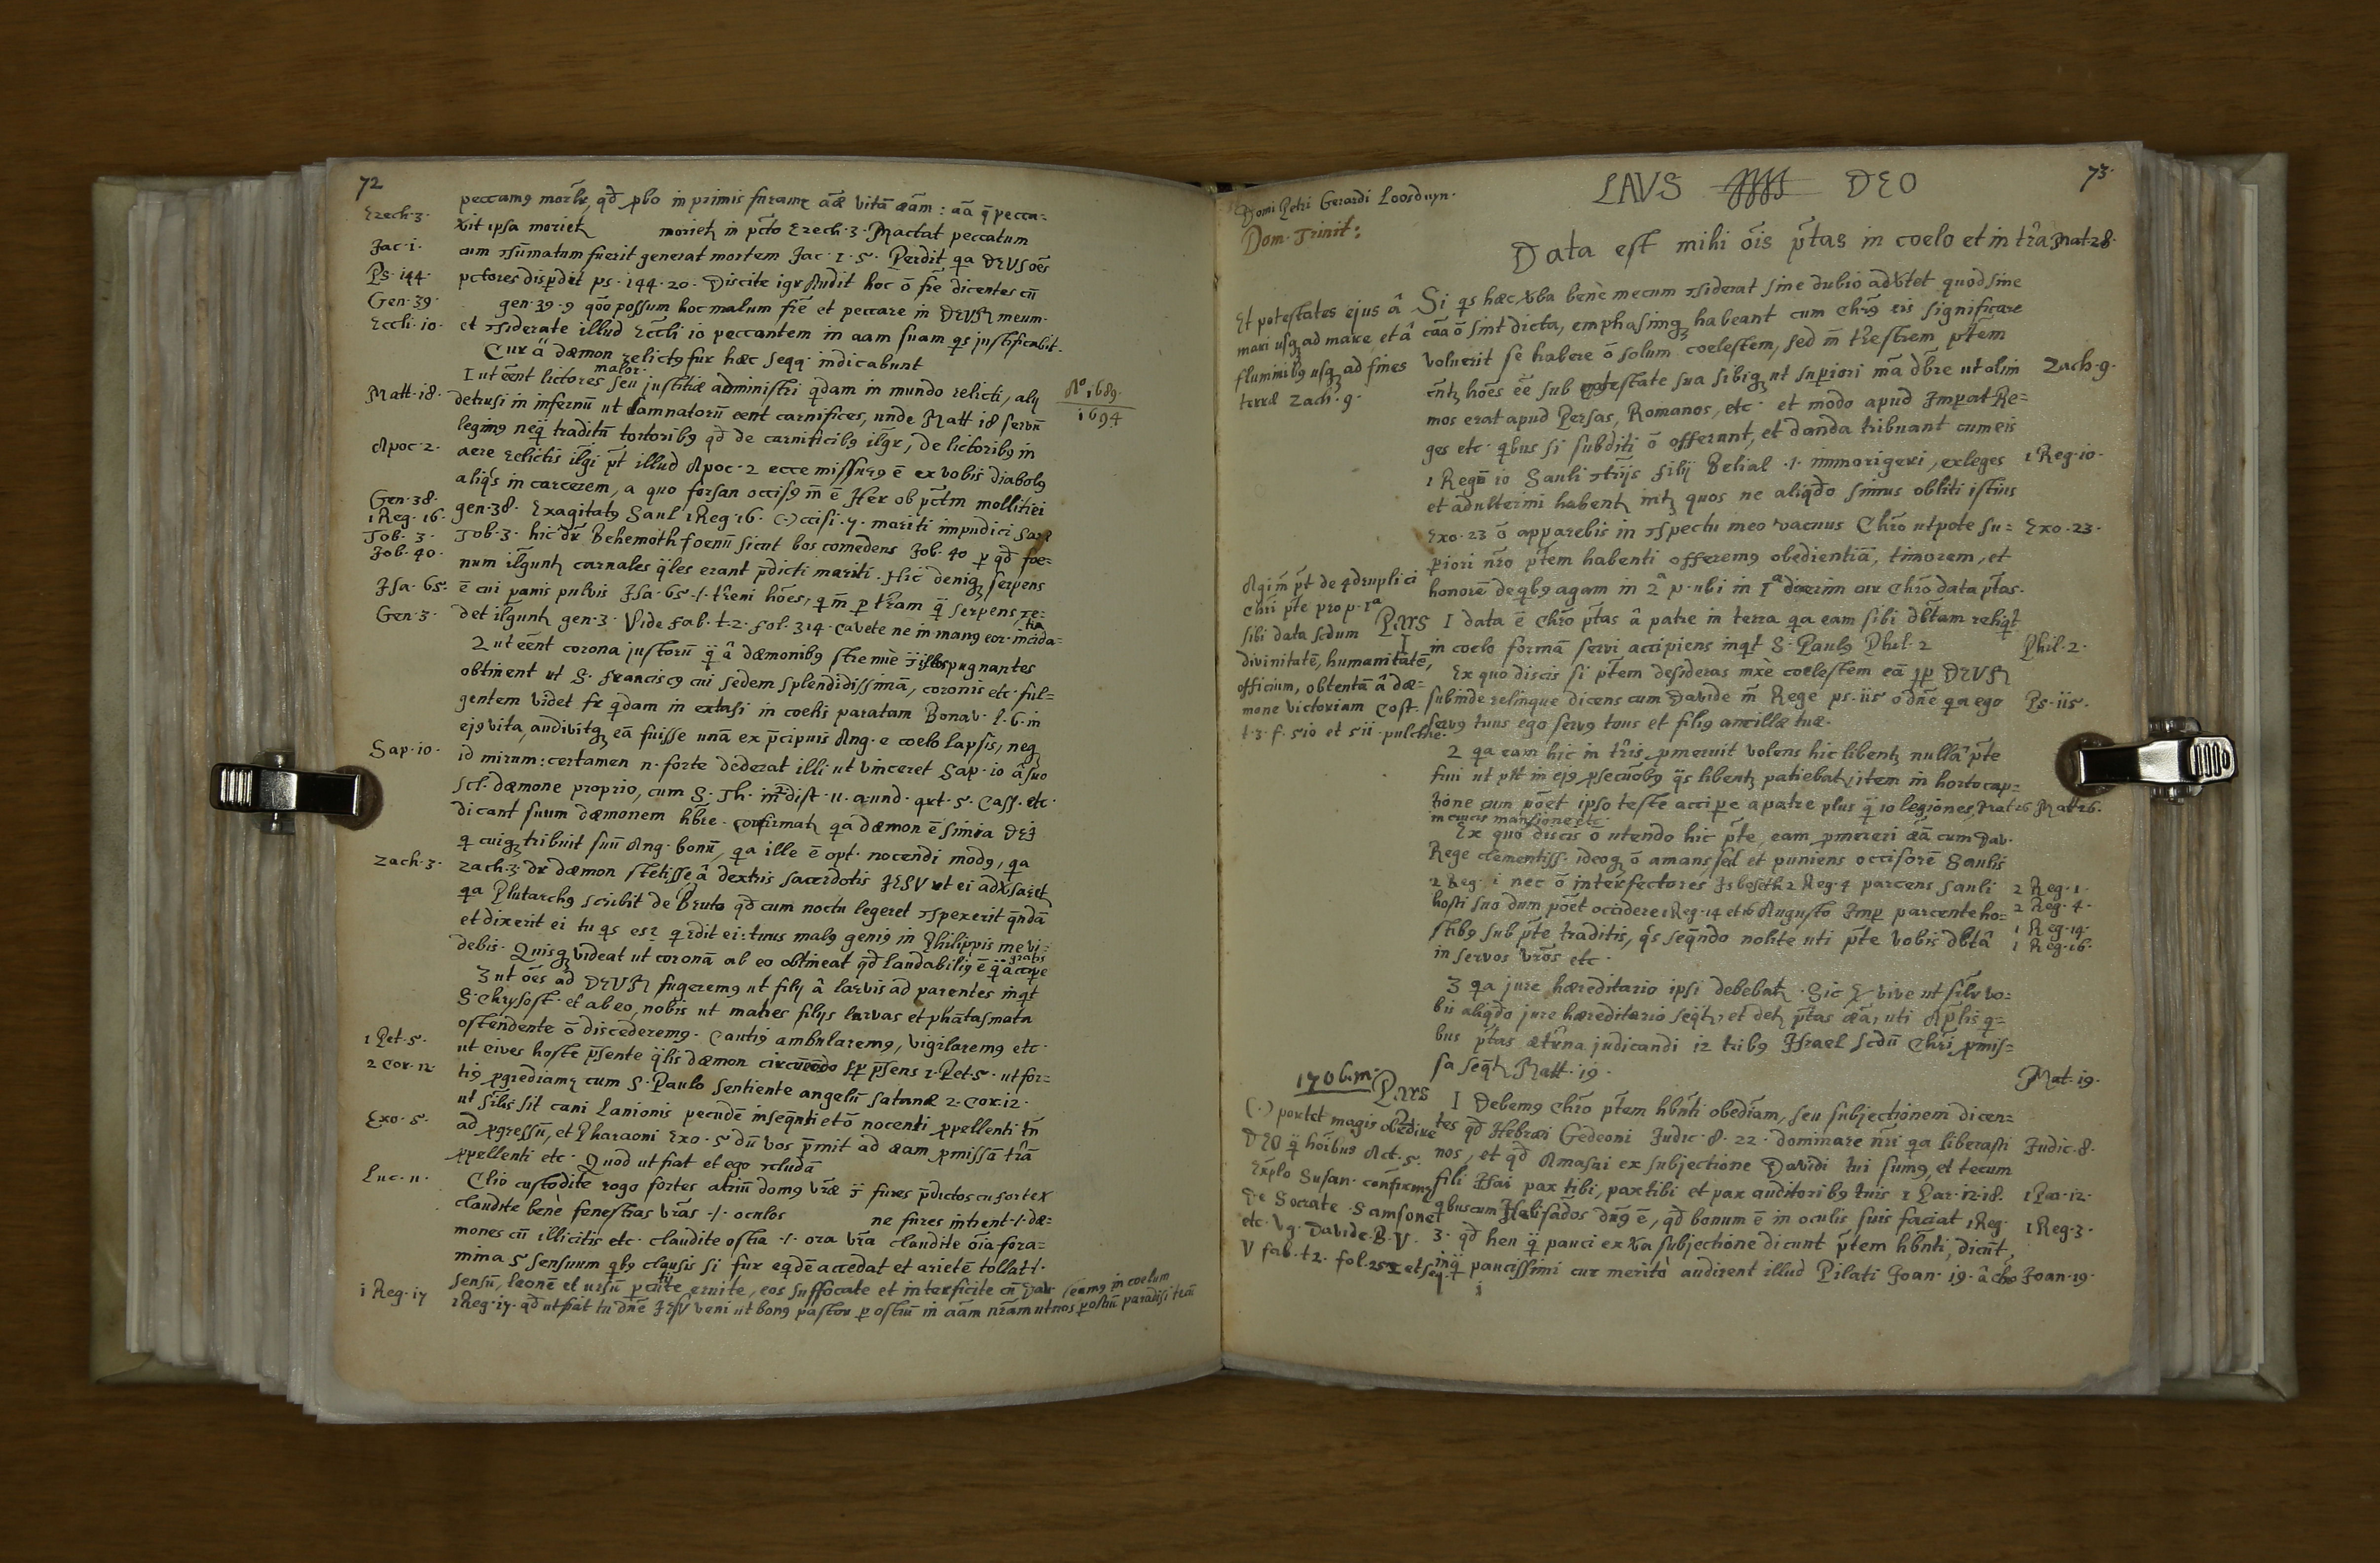 72
peccamus mortlr, qd pbo in primis furamr aae vitā aām : aā q̄ pecca=
Ezech·3· xit ipsa morietr morietr in pcto Ezech·3· Mactat peccatum
Jac·1· cum sumatum fuerit generat mortem Jac·1·5· Perdit qa DEUS oēs
Ps·144· pctores disperdit ps·144·20· Discite igr Audit hoc ō fre dicentes cū
Gen·39· gen·39·9 qōo possum hoc malum frē et peccare in DEUM meum·
Eccli·10· et siderate illud Eccli 10 peccantem in aam suam qs justificabit·
Cur ā dæmon relictus fur hæc seqq· indicabunt
malor
1 ut eēnt lictores seu justitiæ administri qdam in mundo relicti, alij Aº 1689·
Matt·18· detrusi in infernū ut damnatorū eent carnifices, unde Matt 18 servū 1694
legimus neq traditū tortoribus qd de carnificibus ilgr, de lictoribus in
Apoc·2· aere relictis ilgi pt illud Apoc·2 ecce missurus ē ex vobis diabolus
aliqs in carcerem, a quo forsan occisus m̄ ē Her ob pctm mollitiei
Gen·38· gen·38· Exagitatus Saul 1 Reg·16· (·) ccisi ·7· mariti impudici Saræ
1 Reg·16·
Tob·3· Tob·3· hic dr Behemoth foenū sicut bos comedens Job·40 p qd foe=
Job·40· num ilguntr carnales qles erant p̄dicti mariti· Hic deniq serpens
Isa·65· ē cui panis pulvis Isa·65 ·/· trēni hoēs, qm̄ p trām q̄ serpens
Gen·3· det ilguntr gen·3· Vide Fab·t·2·fol·314· cavete ne in manus eor· incida=
2 ut eēnt corona justorū q̄ â dæmonibus strenuè illos pugnantes
obtinent ut S· Franciscus cui sedem splendidissimā, coronis etc· ful=
gentem videt fr qdam in extasi in coelis paratam Bonav· l·6· in
ejus vita, audivitq eā fuisse unā ex p̄cipuis Ang· e coelo lapsis, neq
Sap·10· id mirum: certamen n· forte dederat illi ut vinceret Sap·10 â suo
scl· dæmone proprio, cum S· Th· in 2 dist·11· a·und· qrt·5· Cass· etc·
dicant suum dæmonem hbre· confirmatr qa dæmon ē simia DEI
q cuiq tribuit suū Ang· bonū, qa ille ē opt· nocendi modus, qa
Zach·3· Zach·3· dr dæmon stetisse â dextris sacerdotis JESU ut ei adversaretr
qa Plutarchus scribit de Bruto qd cum noctu legeret spexerit q̄ndā
et dixerit ei tu qs es? q rdit ei: tuus malus genius in Philippis me vi=
debis· Quisq videat ut coronā ab eo obtineat qd laudabilius ē q̄ gratis accipe
3 ut oēs ad DEUM fugeremus ut filij â larvis ad parentes inqt
S· Chrysost· et ab eo, nobis ut matres filijs larvas et phātasmata
ostendente ō discederemus· Cautius ambularemus, vigilaremus etc·
1 Pet·5· ut cives hoste p̄sente q̄lis dæmon circūeūdo sp p̄sens 1·Pet·5· ut for=
2 Cor·12· tius pgrediamr cum S· Paulo sentiente angelū satanæ 2·Cor·12·
ut silis sit cani Lanionis pecudē inseq̄nti et ō nocenti ppellenti tn̄
Exo·5· ad pgressū, et Pharaoni Exo·5 dū vos p̄mit ad eam pmissā trā
ppellenti etc· Quod ut fiat et ego cludā
Luc·11· Clio custodite rogo fortes atriū domus vræ fures p̄dictos cu fortex
claudite benè fenestras vrās ·/· oculos ne fures intrent ·/· dæ=
mones cū illicitis etc· claudite ostia ·/· ora vrā claudite oīa fora=
mina 5 sensuum qbus clausis si fur eqdē accedat et arietē tollat ·/·
sensū, leonē et ursū pcutite eruite, eos suffocate et interficite cū Dav· seamus in coelum
1 Reg·17 1 Reg·17· qd ut fiat tu dn̄e JESU veni ut bonus pastor p ostiū in aām nrām ut nos p ostiū paradisi trā
LAUS DEO 73·
Domi Petri Gerardi Loosduyn·
Dom· Trinit:
Data est mihi ōis p̄tas in coelo et in trā Mat·28·
Et potestates ejus â
mari usq ad mare, et â
fluminibus usq ad fines
terræ Zach·9·
Si qs hæc verba benè mecum siderat sine dubio advertet quod sine
cāa ō sint dicta, emphasimq habeant cum Chrūs eis significare
voluerit se habere ō solum coelestem, sed m̄ trēstrem p̄tem
cn̄tr hoēs eē sub potestate sua sibiq ut superiori mā dbre ut olim Zach·9·
mos erat apud Persas, Romanos, etc· et modo apud Imperat· Re=
ges etc· qbus si subditi ō offerunt, et danda tribuant cum eis
1 Reg 10 Sauli trijs filij Belial ·/· immorigeri, exleges 1 Reg·10·
et adulterini habentr intr quos ne aliqdo simus obliti istius
Exo·23 ō apparebis in spectu meo vacuus Chrō utpote su= Exo·23·
piori nrō p̄tem habenti offeremus obedientiā, timorem, et
honorē de qbus agam in 2ª p· ubi in 1ª dixerim cur Chrō data p̄tas·
Agim pt de 4druplici
Chri pte pro p· 1ª
sibi data scdum
divinitatē, humanitatē,
officium, obtentā â dæ=
mone victoriam Cost·
t·3·f·510 et 511· pulchrè·
Pars I 1 data ē Chrō p̄tas â patre in terra qa eam sibi dbtam reliqt
in coelo formā servi accipiens inqt S· Paulus Phil·2 Phil·2·
Ex quo discis si p̄tem desideras mxè coelestem eā pp DEUM
subinde relinque dicens cum Davide m̄ Rege ps·115 ō dn̄e qa ego Ps·115·
servus tuus ego servus tuus et filius ancillæ tuæ·
2 qa eam hic in trīs pmeruit volens hic libentr nullâ p̄te
frui ut pit in ejus psecuōbus q̄s libentr patiebatr, item in horto cap=
tione cum pōet ipso teste accipe a patre plus q̄ 10 legiones, Mat·26 Matt·26·
in crucis mansione etc·
Ex quo discis ō utendo hic p̄te, eam pmereri æā cum Dav·
Rege clementiss· ideoq ō amans, sed et puniens occisorē Saulis
2 Reg·1 nec ō interfectores Isboseth 2 Reg·4 parcens Sauli 2 Reg·1·
hosti suo dum pōet occidere 1 Reg·14 et 16 Augusto Imp parcente ho= 2 Reg·4·
stibus sub p̄te traditis, q̄s seq̄ndo nolite uti p̄te vobis dbtâ 1 Reg·14·
in servos vrōs etc· 1 Reg·16·
3 qa jure hæreditario ipsi debebatr· Sic vive ut silr vo=
bis aliqdo jure hæreditario seqtr, et detr p̄tas æā, uti Aplis q=
bus p̄tas ætrna judicandi 12 tribus Israel scdū Chri pmis=
sa seqtr Matt·19· Mat·19·
1706·m·
Pars I Debemus Chrō p̄tem hbn̄ti obediam, seu subjectionem dicen=
(·) portet magis obedire
DEO q̄ hoībus Act·5·
Explo Susan· confirmr
de Socrate Samsone
etc· Vg· Davide·B·V·
V fab·t2·fol·257 et seq·
tes qd Hebræi Gedeoni Judic·8·22· dominare nrī qa liberasti Judic·8·
nos, et qd Amasai ex subjectione Davidi tui sumus, et tecum
fili Isai pax tibi, pax tibi et pax auditoribus tuis 1 Par·12·18· 1 Par·12·
qbuscum Heli sados dn̄us ē, qd bonum ē in oculis suis faciat 1 Reg· 1 Reg·3·
3· qd heu q̄ pauci ex va subjectione dicunt p̄tem hbn̄ti, dicūt,
inq̄ paucissimi cur meritò audirent illud Pilati Joan·19· â Joan·19·